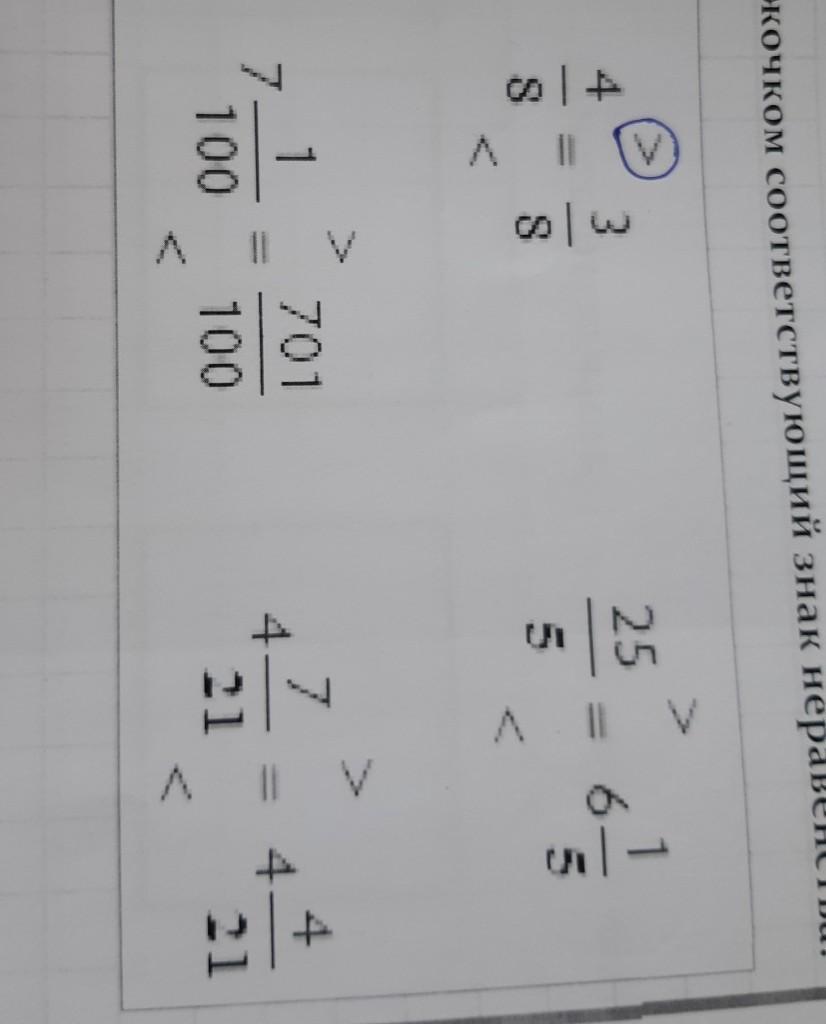 жочком соответствующий знак неравенства.
4/8 > = < 3/8
25/5 > = < 6 1/5
7 1/100 > = < 701/100
4 7/21 > = < 4 4/21